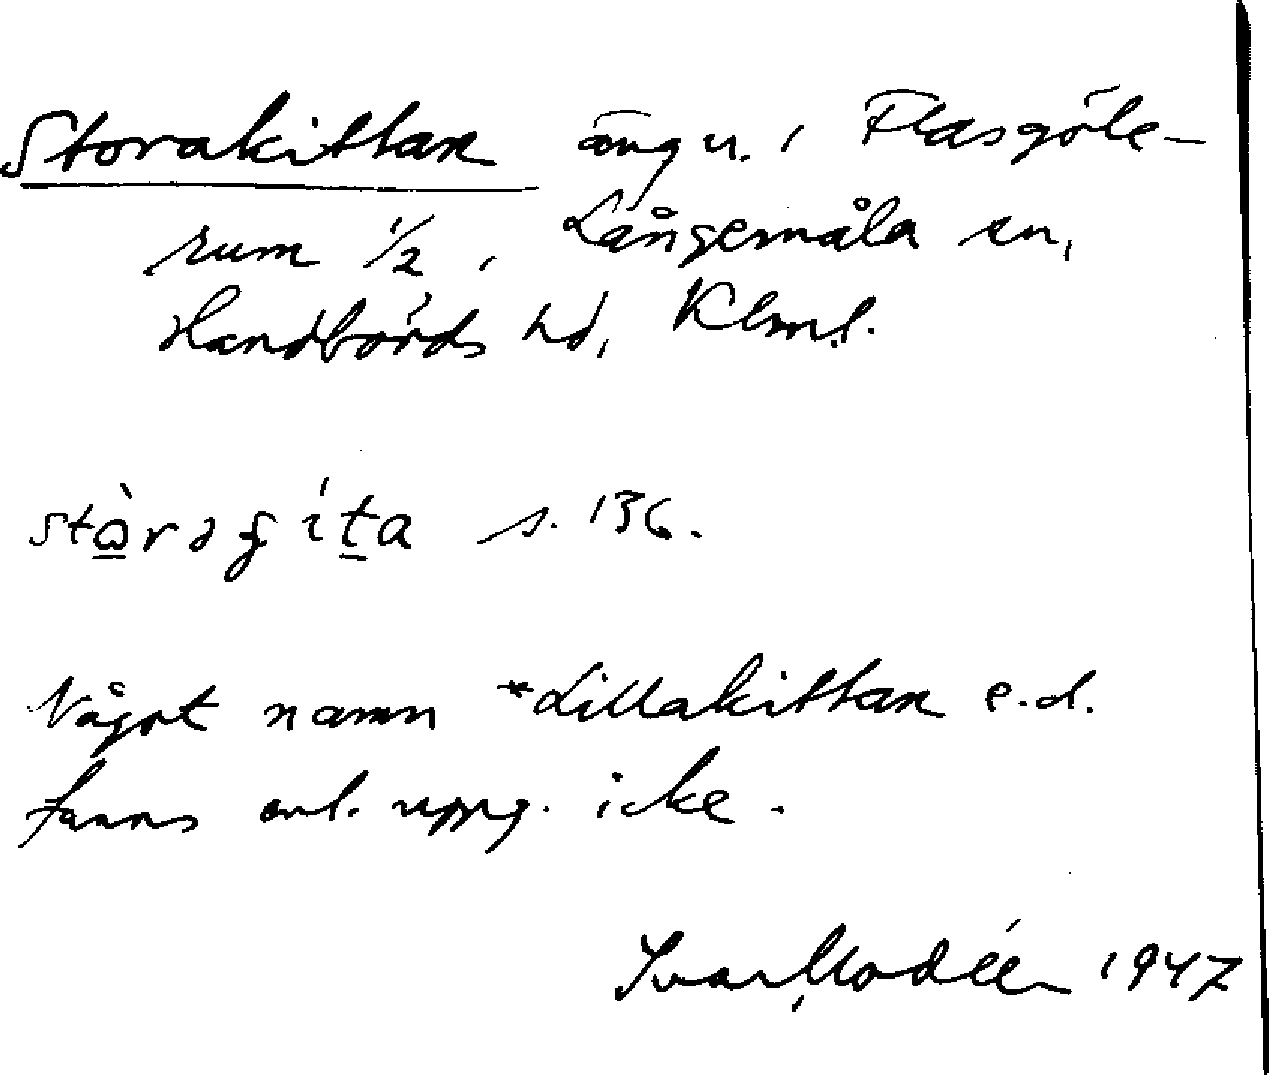 Storakittan äng u. i Flasgöle-
rum 1/2, Långemåla sn,
Handbörds hd, Klml.
stòrəgíta s. 136.
Något namn *Lillakittan e.d.
fanns enl. uppg. icke.
Ivar Modéer 1947